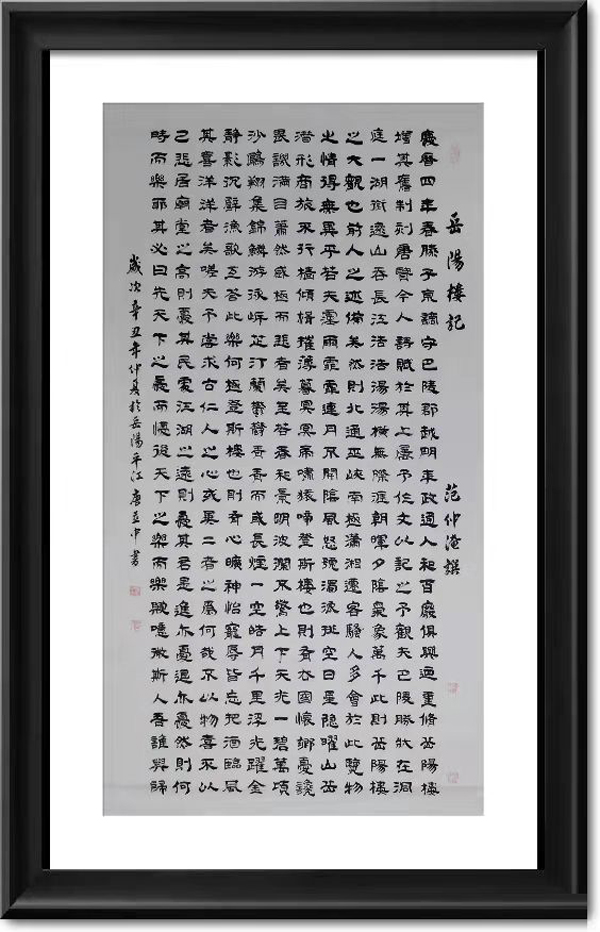 岳陽樓記 范仲淹撰
慶曆四年春滕子京謫守巴陵郡越明年政通人和百廢俱興迺重修岳陽樓
增其舊制刻唐賢今人詩賦於其上屬予作文以記之予觀夫巴陵勝狀在洞
庭一湖銜遠山吞長江浩浩湯湯橫無際涯朝暉夕陰氣象萬千此則岳陽樓
之大觀也前人之述備矣然則北通巫峽南極瀟湘遷客騷人多會於此覽物
之情得無異乎若夫霪雨霏霏連月不開陰風怒號濁浪排空日星隱曜山岳
潛形商旅不行檣傾楫摧薄暮冥冥虎嘯猿啼登斯樓也則有去國懷鄉憂讒
畏譏滿目蕭然感極而悲者矣至若春和景明波瀾不驚上下天光一碧萬頃
沙鷗翔集錦鱗游泳岸芷汀蘭鬱鬱青青而或長煙一空皓月千里浮光躍金
靜影沉璧漁歌互答此樂何極登斯樓也則有心曠神怡寵辱皆忘把酒臨風
其喜洋洋者矣嗟夫予嘗求古仁人之心或異二者之為何哉不以物喜不以
己悲居廟堂之高則憂其民處江湖之遠則憂其君是進亦憂退亦憂然則何
時而樂耶其必曰先天下之憂而憂後天下之樂而樂歟噫微斯人吾誰與歸
歲次辛丑年仲夏於岳陽平江唐中書